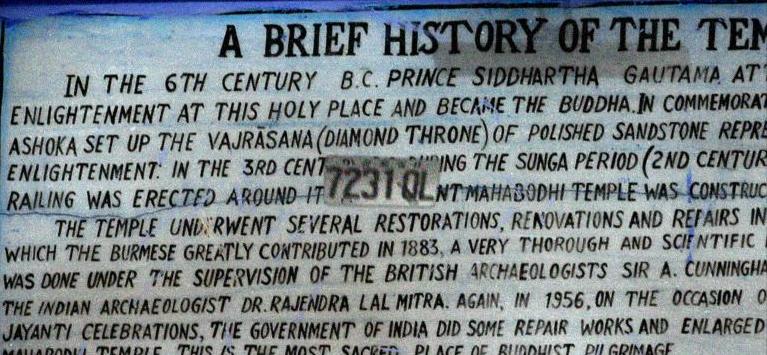 A BRIEF HISTORY OF THE
IN THE 6TH CENTURY B.C. PRINCE SIDDHARTHA GAUTAMA
ENLIGHTENMENT AT THIS HOLY PLACE AND BECAME THE BUDDHA. IN
ASHOKA SET UP THE VAJRĀSANA (DIAMOND THRONE) OF POLISHED SANDSTONE
ENLIGHTENMENT. IN THE 3RD THE SUNGA PERIOD (2ND
RAILING WAS ERECTED AROUND IT 7231QL MAHABODHI TEMPLE WAS
THE TEMPLE UNDERWENT SEVERAL RESTORATIONS, RENOVATIONS AND REPAIRS IN
WHICH THE BURMESE GREATLY CONTRIBUTED IN 1883, A VERY THOROUGH AND SCIENTIFIC
WAS DONE UNDER THE SUPERVISION OF THE BRITISH ARCHAEOLOGISTS SIR A.
THE INDIAN ARCHAEOLOGIST DR. RAJENDRA LAL MITRA. AGAIN, IN 1956, ON THE OCCASION
JAYANTI CELEBRATIONS, THE GOVERNMENT OF INDIA DID SOME REPAIR WORKS AND ENLARGED
MAHABODHI TEMPLE. THIS IS THE MOST SACRED PLACE OF BUDDHIST PILGRIMAGE